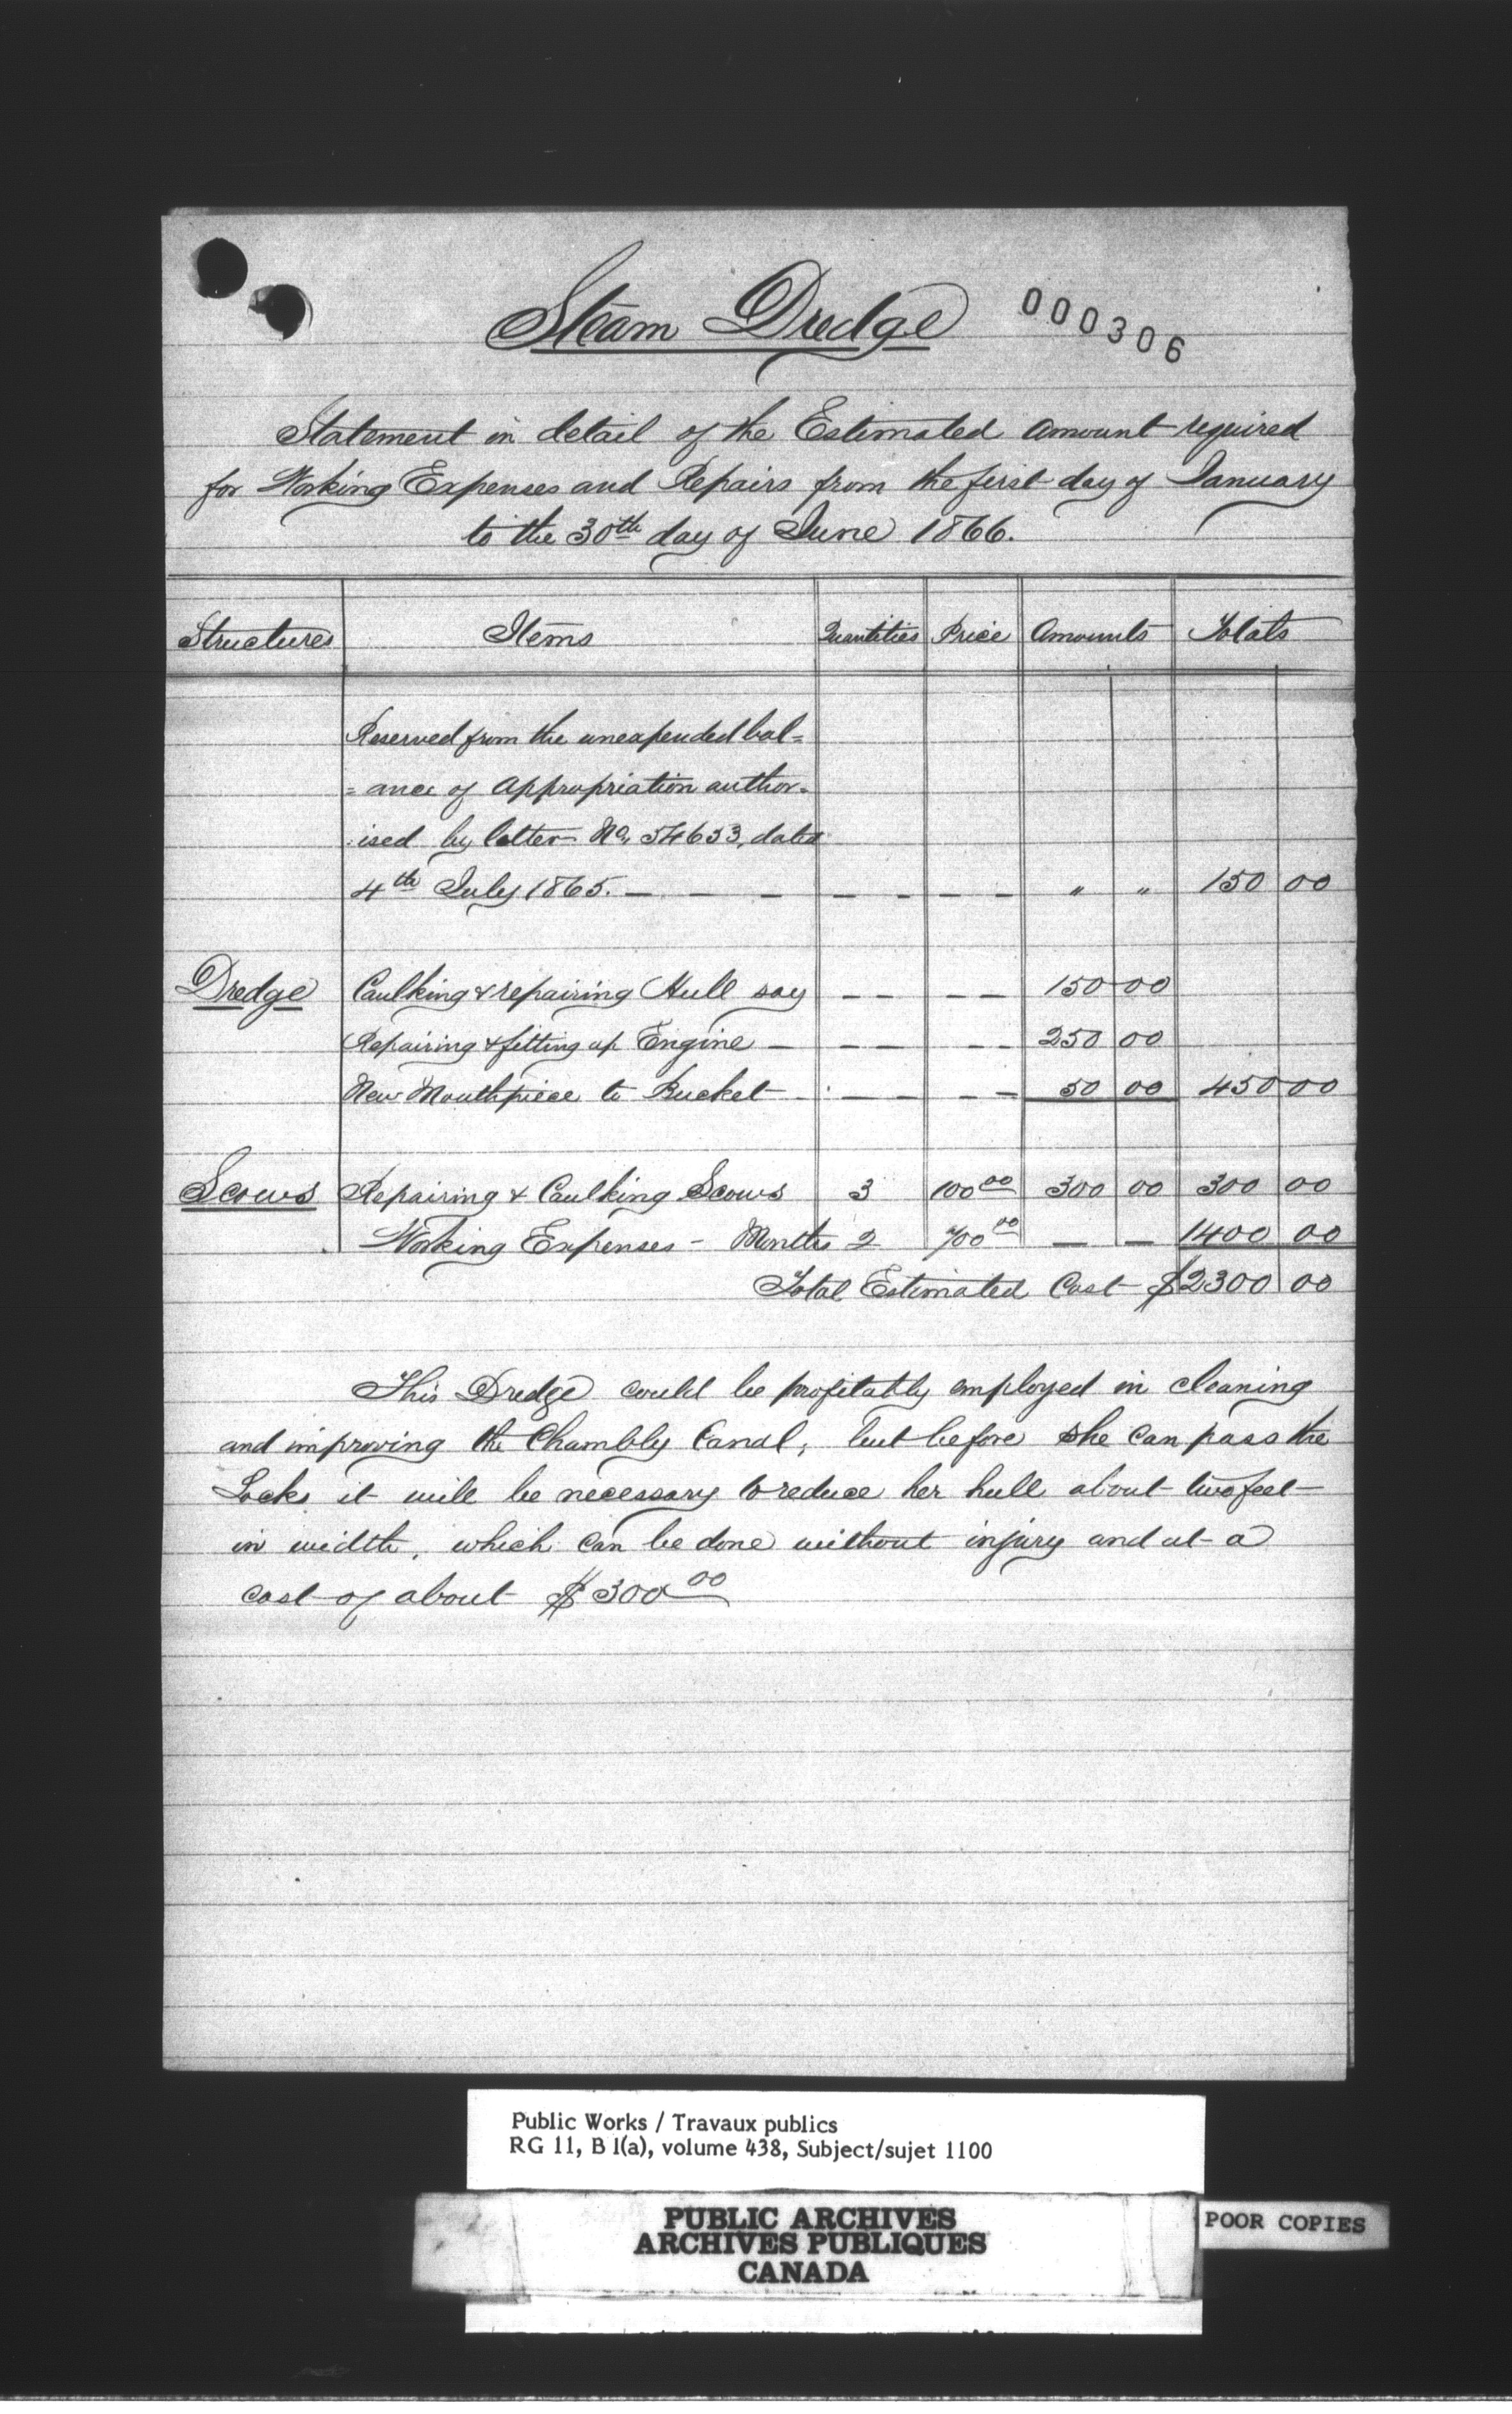 Steam Dredge
000306
Statement in detail of the Estimated amount required
for Working Expenses and Repairs from the first day of January
to the 30th day of June 1866.
Structures Items Quantities Price Amounts Totals
Reserved from the unexpended bal=
=ance of appropriation author-
ised by letter No. 54633, dated
4th July 1865. — — — — — — — " " 150 00
Dredge Caulking & repairing Hull say — — — — 150 00
Repairing & fitting up Engine — — — — — 250 00
New Mouthpiece to Bucket — — — — — 50 00 450 00
Scows Repairing & Caulking Scows 3 100 00 300 00 300 00
Working Expenses - Months 2 700 00 — — 1400 00
Total Estimated Cost $2300 00
This Dredge could be profitably employed in cleaning
and improving the Chambly Canal, but before she can pass the
Locks it will be necessary to reduce her hull about two feet
in width, which can be done without injury and at a
cost of about $300 00
Public Works / Travaux publics
RG 11, B 1(a), volume 438, Subject/sujet 1100
PUBLIC ARCHIVES
ARCHIVES PUBLIQUES
CANADA
POOR COPIES